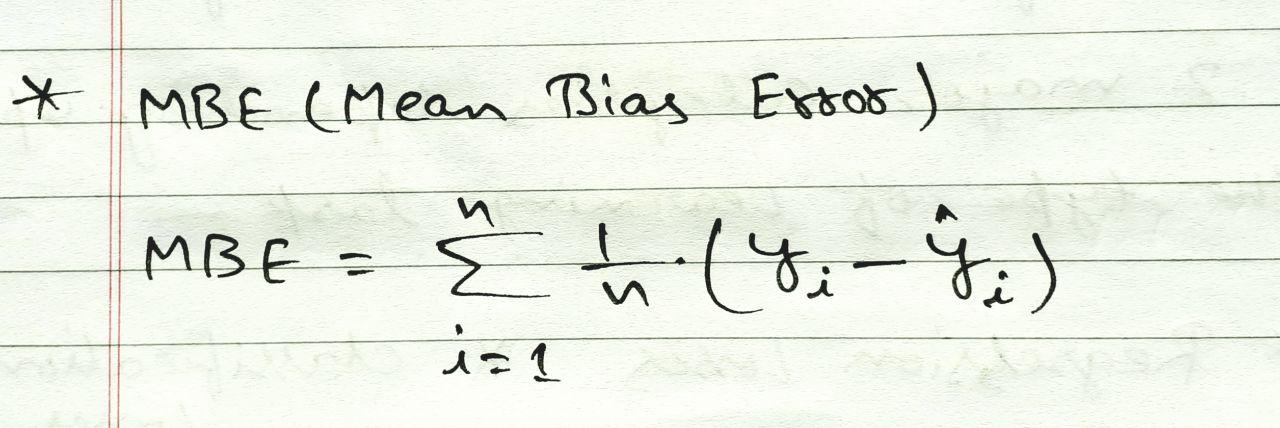 * MBE (Mean Bias Error)
MBE = n∑i=1 1/n · (yᵢ − ŷᵢ)